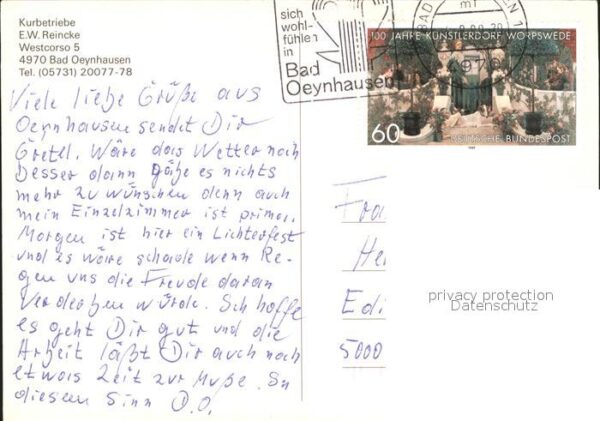 Kurbetriebe
E.W. Reincke
Westcorso 5
4970 Bad Oeynhausen
Tel. (05731) 20077-78
sich
wohl-
fühlen
in
Bad
Oeynhausen
BAD OEYNHAUSEN 1
mf
4970
100 JAHRE KÜNSTLERDORF WORPSWEDE
60
DEUTSCHE BUNDESPOST
Viele liebe Grüße aus
Oeynhausen sendet Dir
Gretel. Wäre das Wetter noch
besser dann gäbe es nichts
mehr zu wünschen denn auch
mein Einzelzimmer ist prima.
Morgen ist hier ein Lichterfest
und es wäre schade wenn Re-
gen uns die Freude daran
verderben würde. Ich hoffe
es geht Dir gut und die
Arbeit läßt Dir auch noch
etwas Zeit zur Muße. In
diesem Sinn D.O.
Fra
He
Edi
5000
privacy protection
Datenschutz